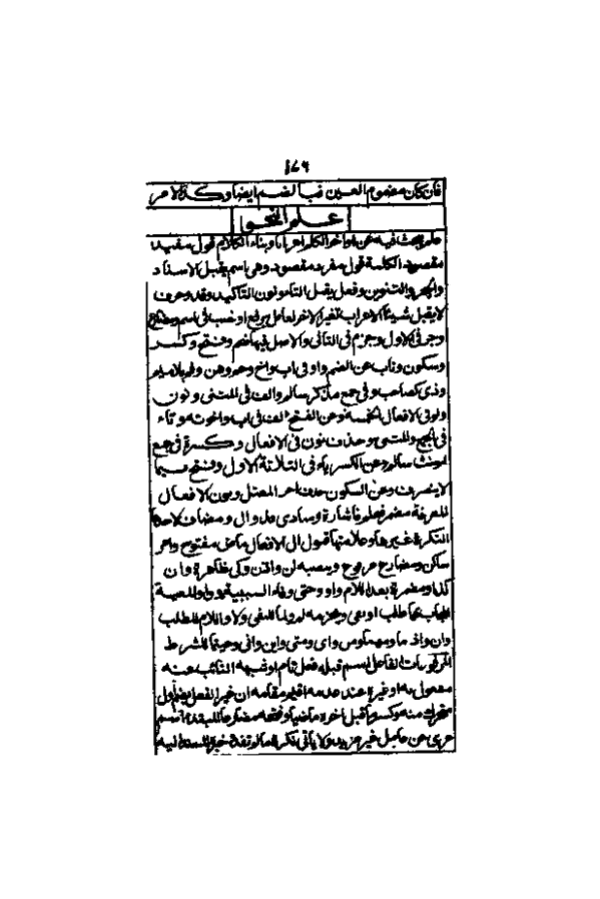 ١٤٩
فان كان مضموم العين فبالضم ايضا وكذا الامر
علم النحو
علم يبحث فيه عن اواخر الكلم اعرابا وبناء الكلام قول مفيد
مقصود الكلمة قول مفرد مقصود وهي اسم يقبل الاسناد
والجر والتنوين وفعل يقبل التاء ونون التاكيد وقد وحرف
لا يقبل شيئا الاعراب تغير الاخر لعامل برفع او نصب في اسم ومضارع
وجر في الاول وجزم في الثاني والاصل فيها ضم وفتح وكسر
وسكون وناب عن الضم واو في اب واخ وحم وهن وفم بلا ميم
وذي كصاحب وفي جمع مذكر سالم والف في المثنى ونون
في الافعال الخمسة وعن الفتح الف في اب واخوته وياء
في الجمع والمثنى وحذف نون في الافعال وكسرة في جمع
المونث سالم وعن الكسر ياء في الثلاثة الاول وفتح فيما
لا ينصرف وعن السكون حذف اخر المعتل ونون الافعال
المعرفة مضمر فعلم فاشارة ومنادى فذوال ومضاف لاحدها
النكرة غيرها وعلامتها قبول ال الافعال ماض مفتوح وامر
ساكن ومضارع مرفوع وينصبه لن واذن وكي ظاهرة وان
كذا ومضمرة بعد اللام واو وحتى وفاء السببية وواو المعية
المجاب بهما طلب او نفي ويجزمه لم ولما للنفي ولا واللام للطلب
وان واذما ومهما ومن واي ومتى واين واني وحيثما للشرط
المرفوعات الفاعل اسم قبله فعل تام او شبهه النائب عنه
مفعول به او غيره عند عدمه اقيم مقامه ان غير الفعل بضم اول
متحرك منه وكسر ما قبل اخره ماضيا وفتحه مضارعا المبتدا اسم
عري عن عامل غير مزيد ولا ياتي نكرة ما لم تفد خبره المسند اليه